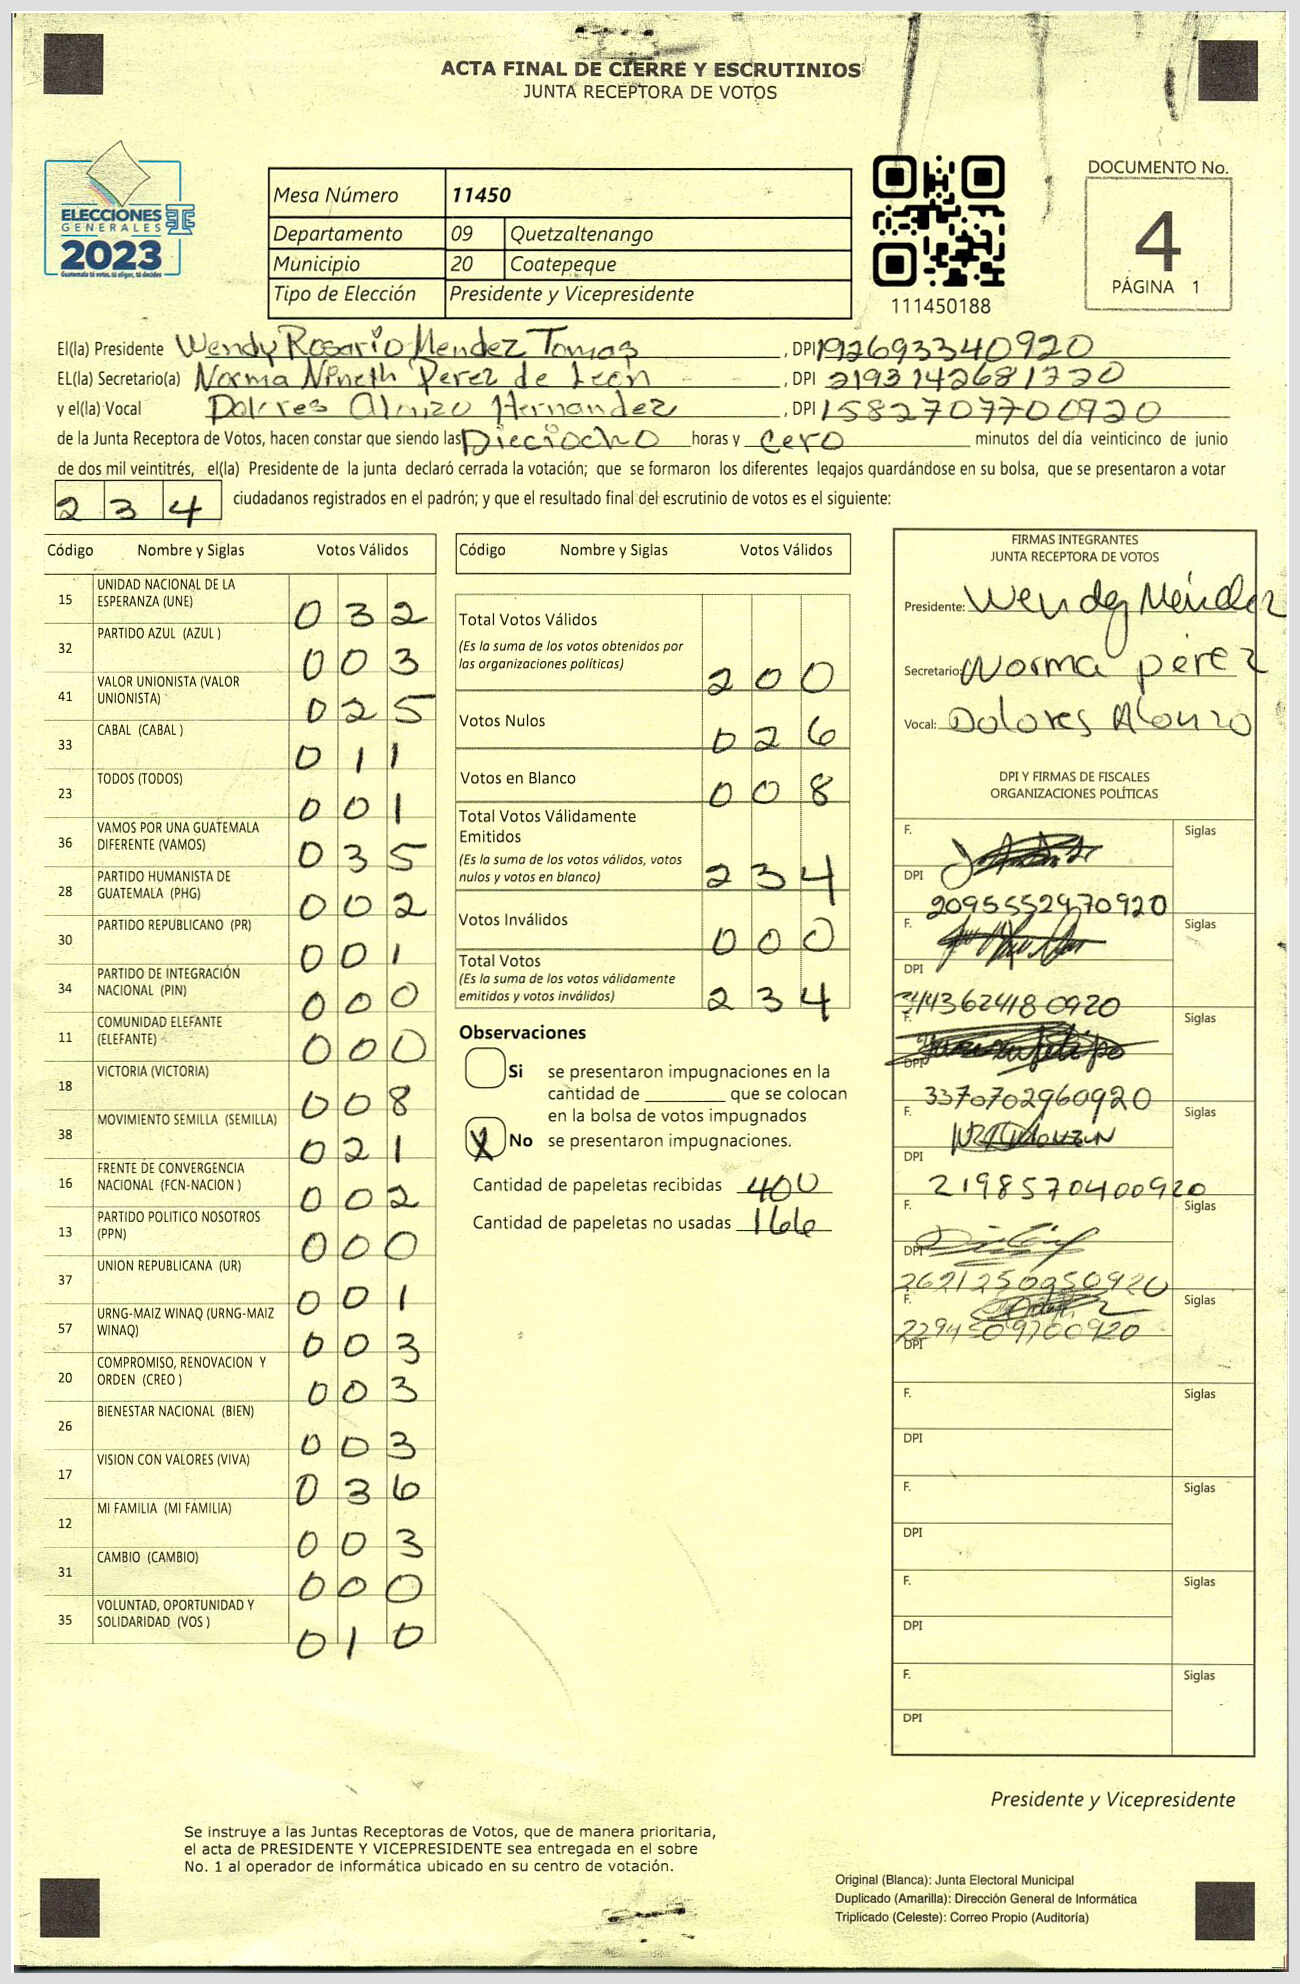 ACTA FINAL DE CIERRE Y ESCRUTINIOS
JUNTA RECEPTORA DE VOTOS
ELECCIONES
GENERALES
2023
Guatemala tú votas, tú eliges, tú decides
Mesa Número 11450
Departamento 09 Quetzaltenango
Municipio 20 Coatepeque
Tipo de Elección Presidente y Vicepresidente
111450188
DOCUMENTO No.
4
PÁGINA 1
El(la) Presidente Wendy Rosario Mendez Tomas, DPI 192693340920
EL(la) Secretario(a) Norma Nineth Perez de León, DPI 2193142681720
y el(la) Vocal Dolores Alonzo Hernandez, DPI 1582707700920
de la Junta Receptora de Votos, hacen constar que siendo las Dieciocho horas y cero minutos del día veinticinco de junio
de dos mil veintitrés, el(la) Presidente de la junta declaró cerrada la votación; que se formaron los diferentes legajos guardándose en su bolsa, que se presentaron a votar
234 ciudadanos registrados en el padrón; y que el resultado final del escrutinio de votos es el siguiente:
Código Nombre y Siglas Votos Válidos
15 UNIDAD NACIONAL DE LA ESPERANZA (UNE) 032
32 PARTIDO AZUL (AZUL ) 003
41 VALOR UNIONISTA (VALOR UNIONISTA) 025
33 CABAL (CABAL ) 011
23 TODOS (TODOS) 001
36 VAMOS POR UNA GUATEMALA DIFERENTE (VAMOS) 035
28 PARTIDO HUMANISTA DE GUATEMALA (PHG) 002
30 PARTIDO REPUBLICANO (PR) 001
34 PARTIDO DE INTEGRACIÓN NACIONAL (PIN) 000
11 COMUNIDAD ELEFANTE (ELEFANTE) 000
18 VICTORIA (VICTORIA) 008
38 MOVIMIENTO SEMILLA (SEMILLA) 021
16 FRENTE DE CONVERGENCIA NACIONAL (FCN-NACION ) 002
13 PARTIDO POLITICO NOSOTROS (PPN) 000
37 UNION REPUBLICANA (UR) 001
57 URNG-MAIZ WINAQ (URNG-MAIZ WINAQ) 003
20 COMPROMISO, RENOVACION Y ORDEN (CREO ) 003
26 BIENESTAR NACIONAL (BIEN) 003
17 VISION CON VALORES (VIVA) 036
12 MI FAMILIA (MI FAMILIA) 003
31 CAMBIO (CAMBIO) 000
35 VOLUNTAD, OPORTUNIDAD Y SOLIDARIDAD (VOS ) 010
Código Nombre y Siglas Votos Válidos
Total Votos Válidos
(Es la suma de los votos obtenidos por
las organizaciones políticas) 200
Votos Nulos 026
Votos en Blanco 008
Total Votos Válidamente
Emitidos
(Es la suma de los votos válidos, votos
nulos y votos en blanco) 234
Votos Inválidos 000
Total Votos
(Es la suma de los votos válidamente
emitidos y votos inválidos) 234
Observaciones
Si se presentaron impugnaciones en la
cantidad de ________ que se colocan
en la bolsa de votos impugnados
X No se presentaron impugnaciones.
Cantidad de papeletas recibidas 400
Cantidad de papeletas no usadas 166
FIRMAS INTEGRANTES
JUNTA RECEPTORA DE VOTOS
Presidente: Wendy Méndez
Secretario: Norma perez
Vocal: Dolores Alonzo
DPI Y FIRMAS DE FISCALES
ORGANIZACIONES POLÍTICAS
F. Siglas
DPI 2095552970920
F. Siglas
DPI
F. Siglas
DPI 3370702960920
F. Siglas
DPI 2198570400920
F. Siglas
DPI 2621250950920
F. Siglas
DPI 2294509700920
F. Siglas
DPI
F. Siglas
DPI
F. Siglas
DPI
F. Siglas
DPI
Presidente y Vicepresidente
Se instruye a las Juntas Receptoras de Votos, que de manera prioritaria,
el acta de PRESIDENTE Y VICEPRESIDENTE sea entregada en el sobre
No. 1 al operador de informática ubicado en su centro de votación.
Original (Blanca): Junta Electoral Municipal
Duplicado (Amarilla): Dirección General de Informática
Triplicado (Celeste): Correo Propio (Auditoría)